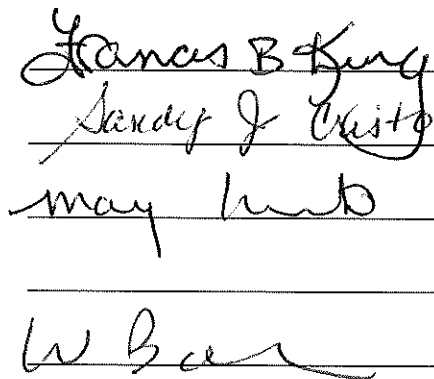 Frances B King
Sandy J Cristo
May
W